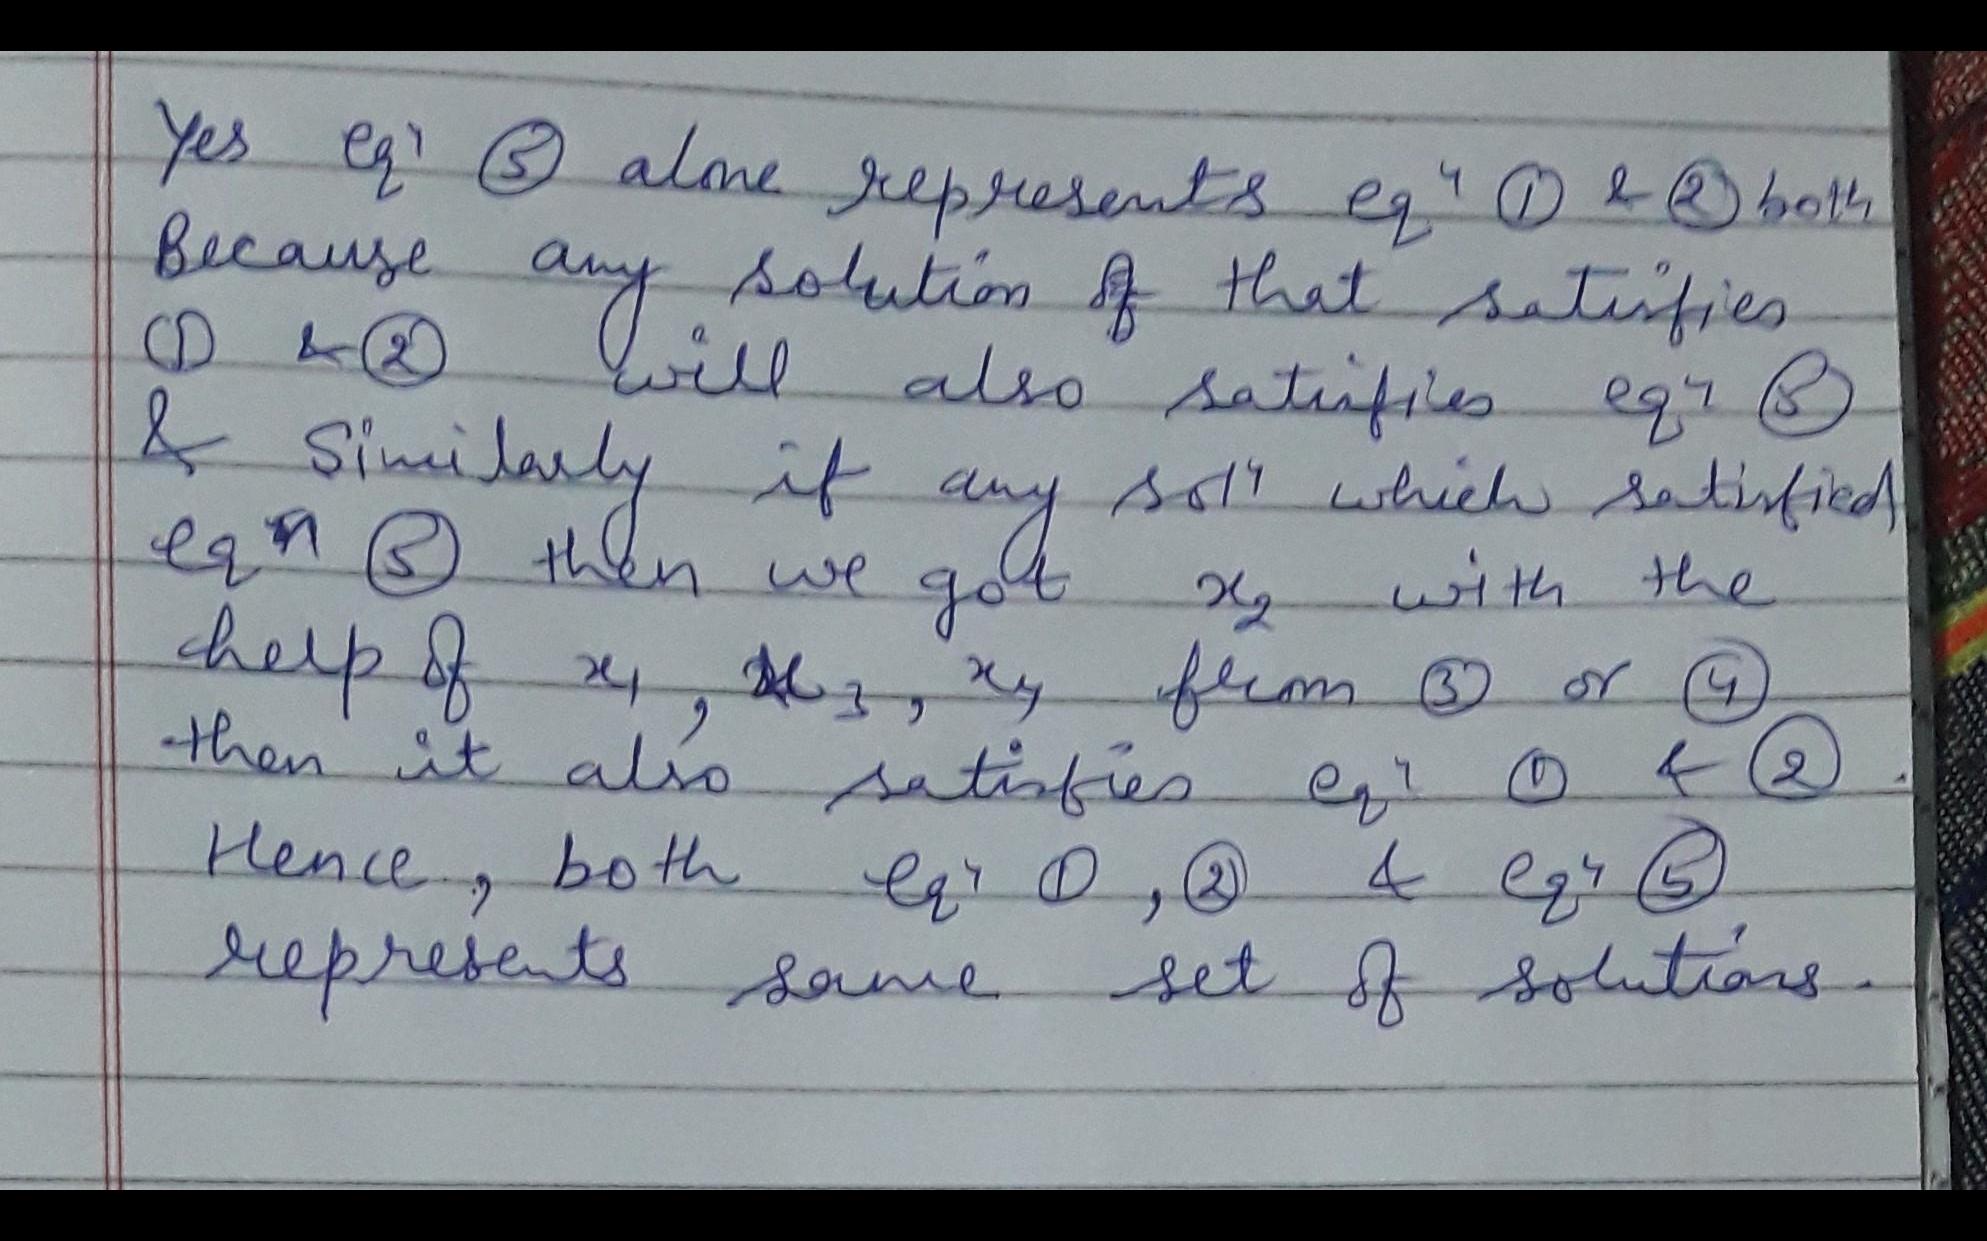 Yes eqⁿ ⑤ alone represents eqⁿ ① & ② both
Because any solution of that satisfies
① & ② will also satisfies eqⁿ ⑤
& Similarly if any solⁿ which satisfied
eqⁿ ⑤ then we got x₂ with the
help of x₁, x₃, x₄ from ③ or ④
then it also satisfies eqⁿ ① & ②.
Hence, both eqⁿ ①, ② & eqⁿ ⑤
represents same set of solutions.